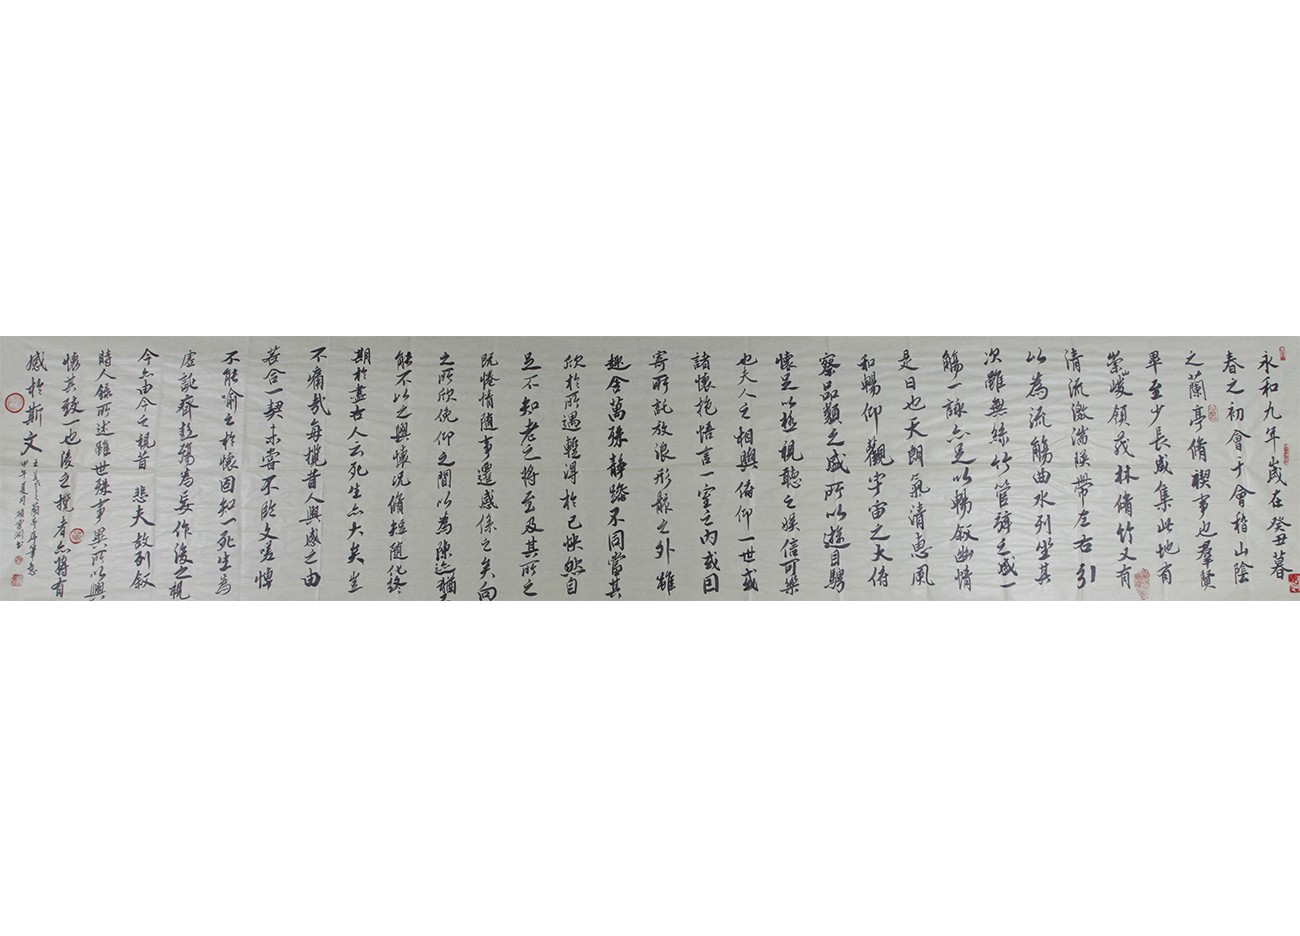 永和九年歲在癸丑暮
春之初會于會稽山陰
之蘭亭脩禊事也羣賢
畢至少長咸集此地有
崇山峻領茂林脩竹又有
清流激湍暎帶左右引
以為流觴曲水列坐其
次雖無絲竹管弦之盛一
觴一詠亦足以暢敘幽情
是日也天朗氣清惠風
和暢仰觀宇宙之大俯
察品類之盛所以遊目騁
懷足以極視聽之娛信可樂
也夫人之相與俯仰一世或
諸懷抱悟言一室之內或因
寄所託放浪形骸之外雖
趣舍萬殊靜躁不同當其
欣於所遇暫得於己快然自
足不知老之將至及其所之
既惓情隨事遷感係之矣向
之所欣俛仰之間以為陳迹猶
能不以之興懷況脩短隨化終
期於盡古人云死生亦大矣豈
不痛哉每攬昔人興感之由
若合一契未嘗不臨文嗟悼
不能喻之於懷固知一死生為
虛誕齊彭殤為妄作後之視
今亦由今之視昔悲夫故列敘
時人錄所述雖世殊事異所以興
懷其致一也後之攬者亦將有
感於斯文
王羲之蘭亭序筆意
甲午夏月 書